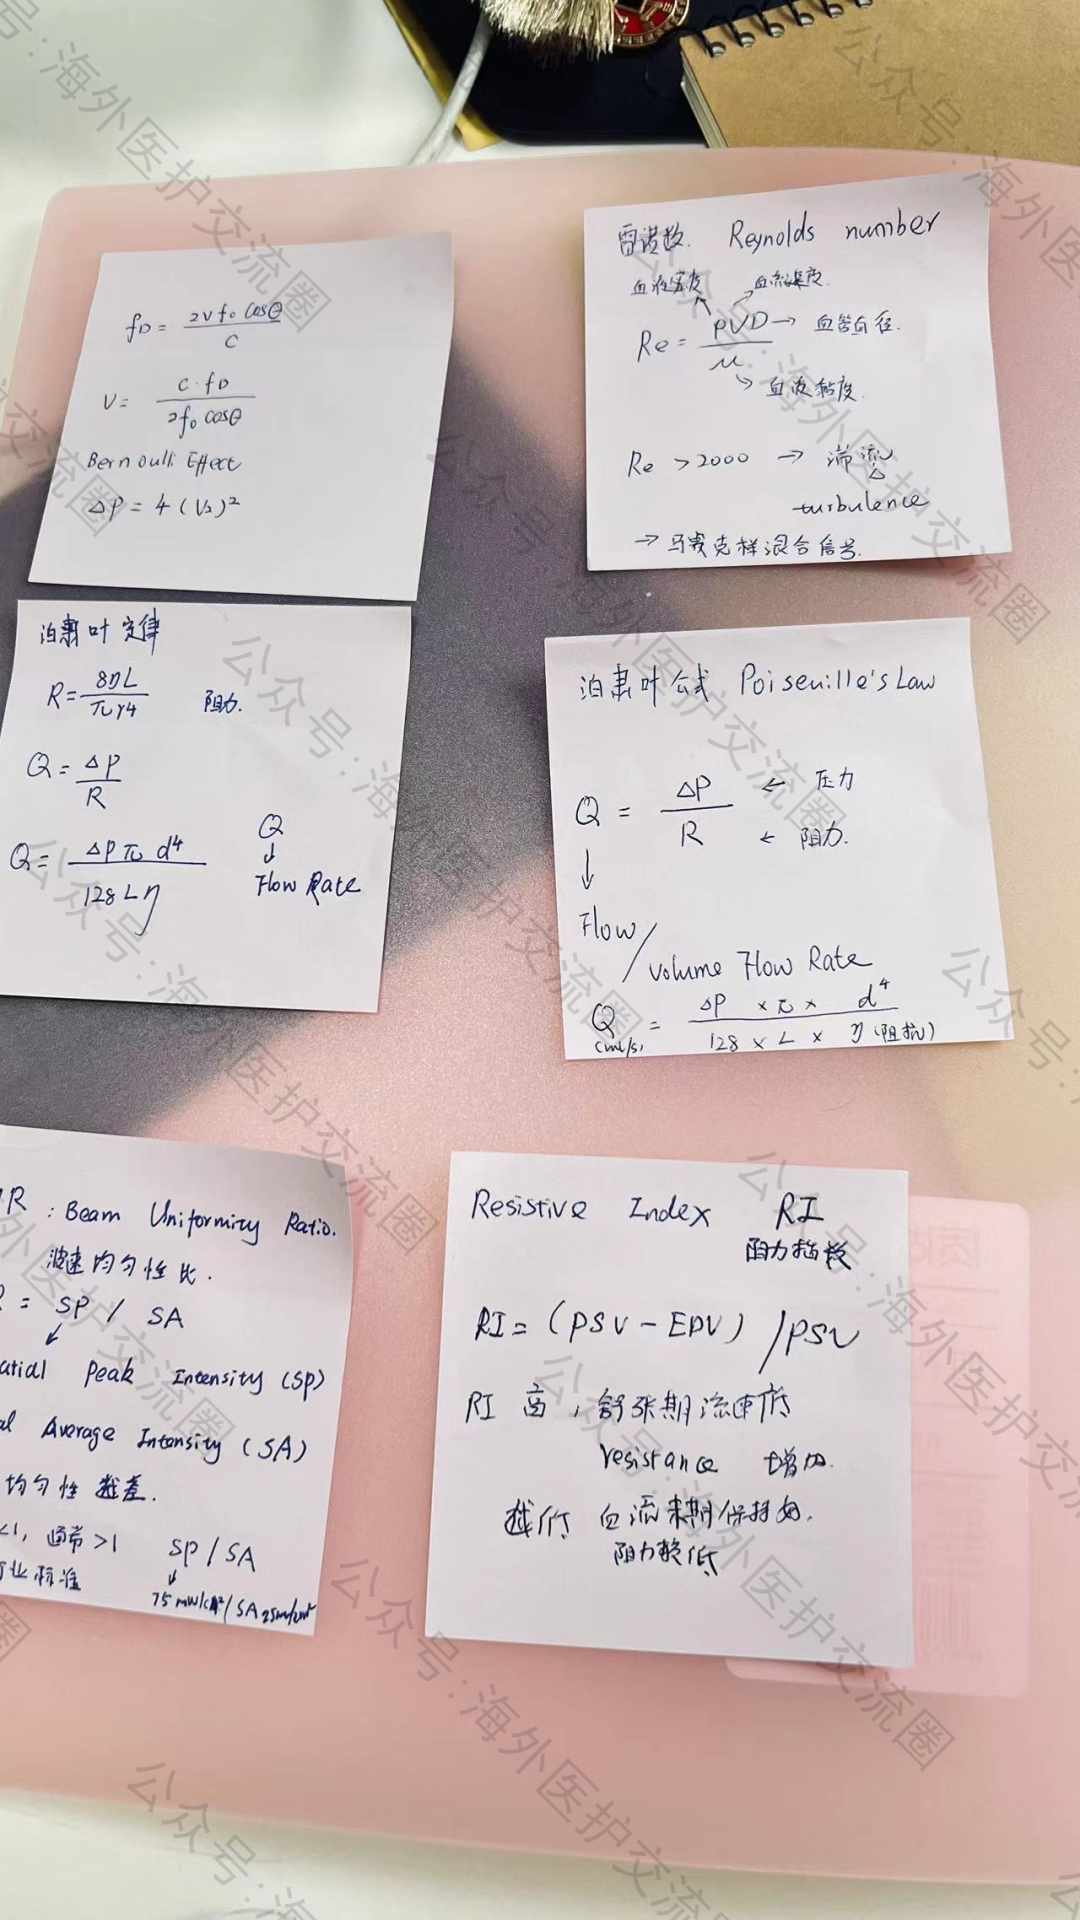 fD = 2Vf₀ cosθ / C
V = C·fD / 2f₀ cosθ
Bernoulli Effect
ΔP = 4(V₂)²
雷诺数. Reynolds number
血液密度 血流速度.
Re = ρVD / μ → 血管直径.
血液黏度.
Re >2000 → 湍流
turbulence
→ 马赛克样混合信号.
泊肃叶定律
R = 8ηL / πr4 阻力.
Q = ΔP / R
Q = ΔPπ d⁴ / 128 L η
Q
↓
Flow Rate
泊肃叶公式 Poiseuille's Law
Q = ΔP / R
← 压力
← 阻力.
↓
Flow / volume Flow Rate
Q (ml/s) = ΔP × π × d⁴ / 128 × L × η (阻抗)
R : Beam Uniformity Ratio.
均匀性比.
= SP / SA
atial Peak Intensity (SP)
l Average Intensity (SA)
均匀性越差.
<1, 通常 >1 SP / SA
业标准
Resistive Index RI
阻力指数
RI = (PSV - EDV) / PSV
RI 高, 舒张期流速低
resistance 增加.
越低 血流末期保持好.
阻力较低
公众号:海外医护交流圈